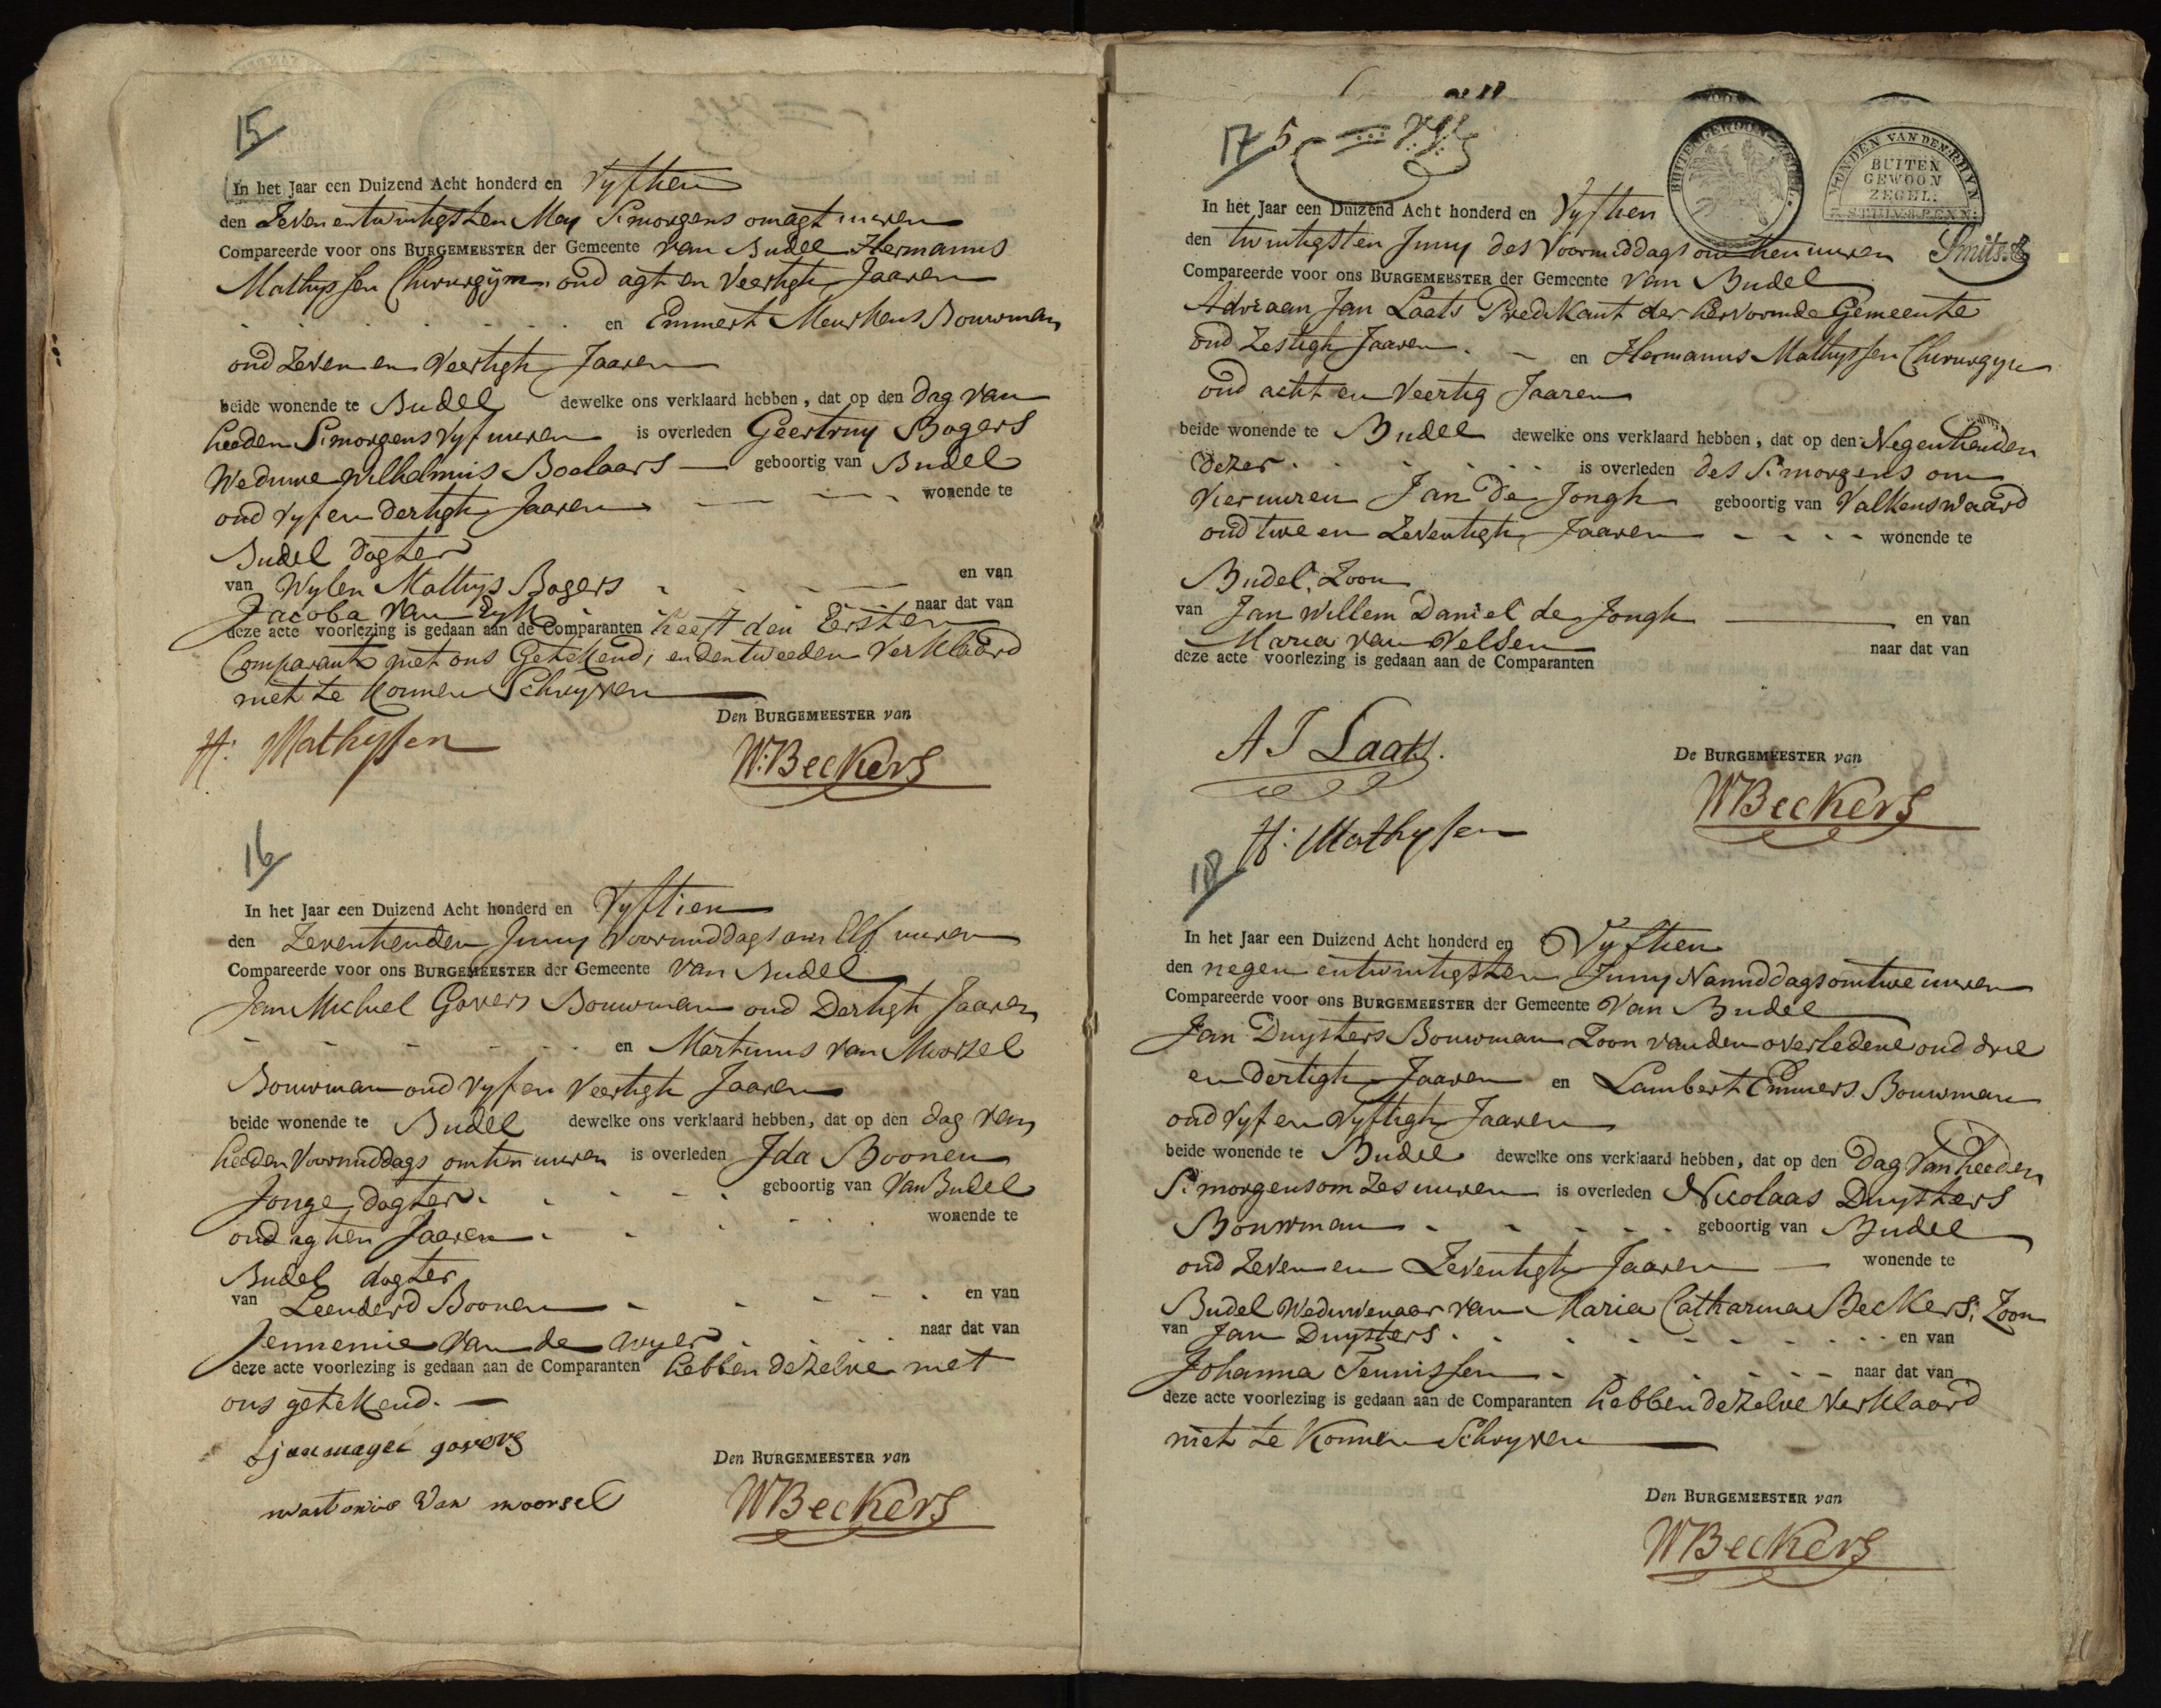 15
In het Jaar een Duizend Acht honderd en Vyftien
den Zeven entwintigsten Mey S'morgens om agt uuren
Compareerde voor ons BURGEMEESTER der Gemeente van Budel Hermanus
Mathyssen Chirurgyn oud agt en Veertigh Jaaren
en Emmert Meurkens Bouwman
oud Zeven en Veertigh Jaaren
beide wonende te Budel dewelke ons verklaard hebben, dat op den dag van
heeden S'morgens vyf uuren is overleden Geertruy Bogers
Weduwe Wilhelmus Boelaars geboortig van Budel
oud vyf en dertigh Jaaren wonende te
Budel dogter
van Wylen Mathys Bogers en van
Jacoba van Eyk naar dat van
deze acte voorlezing is gedaan aan de Comparanten heeft den Eersten
Comparant met ons Getekend, en den tweeden Verklaard
niet te konnen Schryven
Den BURGEMEESTER van
H: Mathyssen
W:Beckers
16
In het Jaar een Duizend Acht honderd en Vyftien
den Zeventienden Juny Voormiddags om Elf uuren
Compareerde voor ons BURGEMEESTER der Gemeente van Budel
Jan Michiel Govers Bouwman oud Dertigh Jaaren
en Martinus van Moorsel
Bouwman oud vyf en Veertigh Jaaren
beide wonende te Budel dewelke ons verklaard hebben, dat op den dag van
heeden Voormiddags om tien uuren is overleden Ida Boonen
Jonge dogter geboortig van Van Budel
oud agtien Jaaren wonende te
Budel dogter
van Leenderd Boonen en van
Jennemie van de wyer naar dat van
deze acte voorlezing is gedaan aan de Comparanten hebben dezelve met
ons getekend.
govers
Den BURGEMEESTER van
van moorsel
WBeckers
17 5
BUITENGEWOON ZEGEL
MONDEN VAN DEN RHYN
BUITEN
GEWOON
ZEGEL:
In het Jaar een Duizend Acht honderd en Vyftien
den twintigsten Juny des Voormiddags om tien uuren Smits
Compareerde voor ons BURGEMEESTER der Gemeente van Budel
Adriaan Jan Laats Predikant der hervormde Gemeente
oud Zestigh Jaaren en Hermanus Mathyssen Chirurgyn
oud acht en Veertig Jaaren
beide wonende te Budel dewelke ons verklaard hebben, dat op den Negentienden
dezer is overleden des S'morgens om
Vier uuren Jan De Jongh geboortig van Valkenswaard
oud twe en Zeventigh Jaaren wonende te
Budel, Zoon
van Jan Willem Daniel de Jongh en van
Maria van Velsen naar dat van
deze acte voorlezing is gedaan aan de Comparanten
A J Laats.
De BURGEMEESTER van
WBeckers
H: Mathyssen
18
In het Jaar een Duizend Acht honderd en Vyftien
den negen entwintigsten Juny Namiddags om twe uuren
Compareerde voor ons BURGEMEESTER der Gemeente Van Budel
Jan Duysters Bouwman Zoon van den overledene oud drie
en dertigh Jaaren en Lambert Emmers Bouwman
oud vyf en Vyftigh Jaaren
beide wonende te Budel dewelke ons verklaard hebben, dat op den Dag Van heeden
S'morgens om Zes uuren is overleden Nicolaas Duysters
Bouwman geboortig van Budel
oud Zeven en Zeventigh Jaaren wonende te
Budel Weduwenaar van Maria Catharina Beckers; Zoon
van Jan Duysters en van
Johanna Teunissen naar dat van
deze acte voorlezing is gedaan aan de Comparanten hebben dezelve Verklaard
niet te Konnen Schryven
Den BURGEMEESTER van
WBeckers